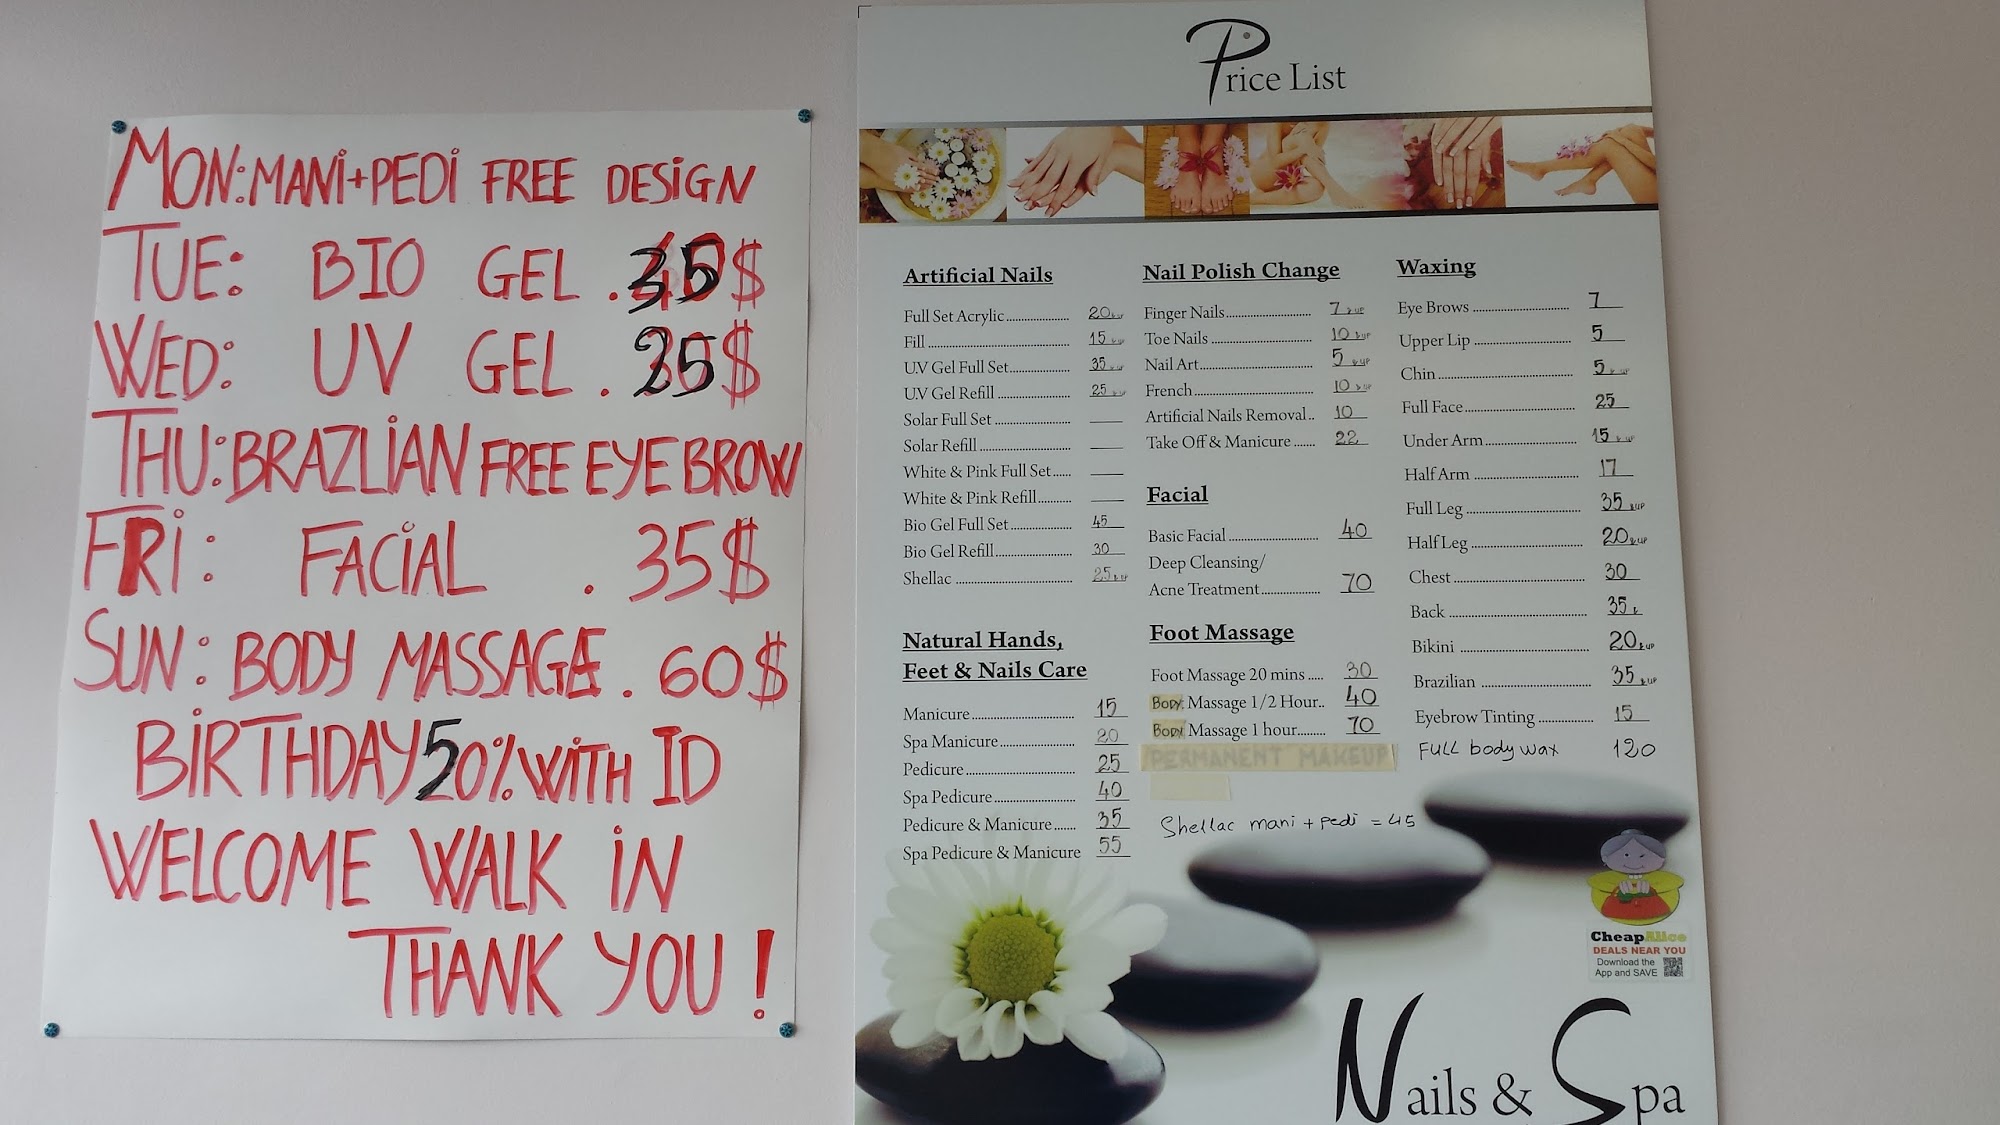 MON: MANi+PEDi FREE DESiGN
TUE: BIO GEL .35$
WED: UV GEL .25$
THU: BRAZLiAN FREE EYE BROW
FRi: FACiAL .35$
SUN: BODY MASSAGE. 60$
BiRTHDAY 50% WiTH ID
WELCOME WALK iN
THANK YOU!
Price List
Artificial Nails
Full Set Acrylic 20 & UP
Fill 15 & UP
U.V Gel Full Set 35 & UP
U.V Gel Refill 25 & UP
Solar Full Set
Solar Refill
White & Pink Full Set
White & Pink Refill
Bio Gel Full Set 45
Bio Gel Refill 30
Shellac 25 & UP
Natural Hands,
Feet & Nails Care
Manicure 15
Spa Manicure 20
Pedicure 25
Spa Pedicure 40
Pedicure & Manicure 35
Spa Pedicure & Manicure 55
Nail Polish Change
Finger Nails 7 & UP
Toe Nails 10 & UP
Nail Art 5 & UP
French 10 & UP
Artificial Nails Removal 10
Take Off & Manicure 22
Facial
Basic Facial 40
Deep Cleansing/
Acne Treatment 70
Foot Massage
Foot Massage 20 mins 30
BODY Massage 1/2 Hour 40
BODY Massage 1 hour 70
PERMANENT MAKEUP
Shellac mani + pedi = 45
Waxing
Eye Brows 7
Upper Lip 5
Chin 5 & UP
Full Face 25
Under Arm 15 & UP
Half Arm 17
Full Leg 35 & UP
Half Leg 20 & UP
Chest 30
Back 35 &
Bikini 20 & UP
Brazilian 35 & UP
Eyebrow Tinting 15
FULL body wax 120
CheapAlice
DEALS NEAR YOU
Download the
App and SAVE
Nails & Spa